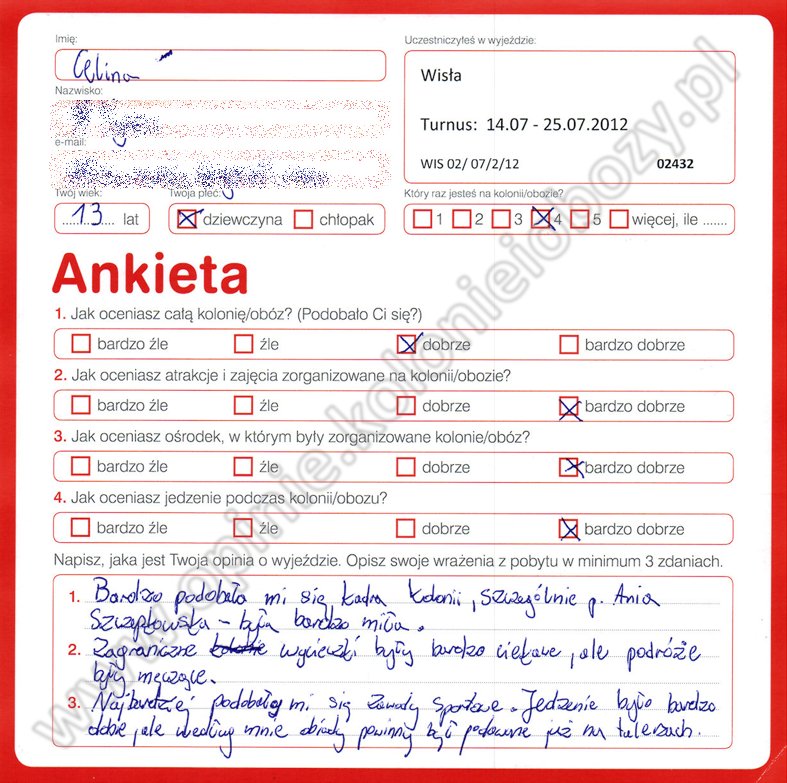 Imię:
Celina
Uczestniczyłeś w wyjeździe:
Wisła
Nazwisko:
Turnus: 14.07 - 25.07.2012
e-mail:
WIS 02/ 07/2/12 02432
Twój wiek: Twoja płeć: Który raz jesteś na kolonii/obozie?
13 lat dziewczyna chłopak 1 2 3 4 5 więcej, ile .......
Ankieta
1. Jak oceniasz całą kolonię/obóz? (Podobało Ci się?)
bardzo źle źle dobrze bardzo dobrze
2. Jak oceniasz atrakcje i zajęcia zorganizowane na kolonii/obozie?
bardzo źle źle dobrze bardzo dobrze
3. Jak oceniasz ośrodek, w którym były zorganizowane kolonie/obóz?
bardzo źle źle dobrze bardzo dobrze
4. Jak oceniasz jedzenie podczas kolonii/obozu?
bardzo źle źle dobrze bardzo dobrze
Napisz, jaka jest Twoja opinia o wyjeździe. Opisz swoje wrażenia z pobytu w minimum 3 zdaniach.
1. Bardzo podobała mi się kadra kolonii, szczególnie p. Ania
– była bardzo miła.
2. Zagraniczne wycieczki były bardzo ciekawe, ale podróże
były męczące.
3. Najbardziej podobały mi się zawody sportowe. Jedzenie było bardzo
dobre, ale według mnie obiady powinny być podawane już na talerzach.
www.opinie.kolonieiobozy.pl